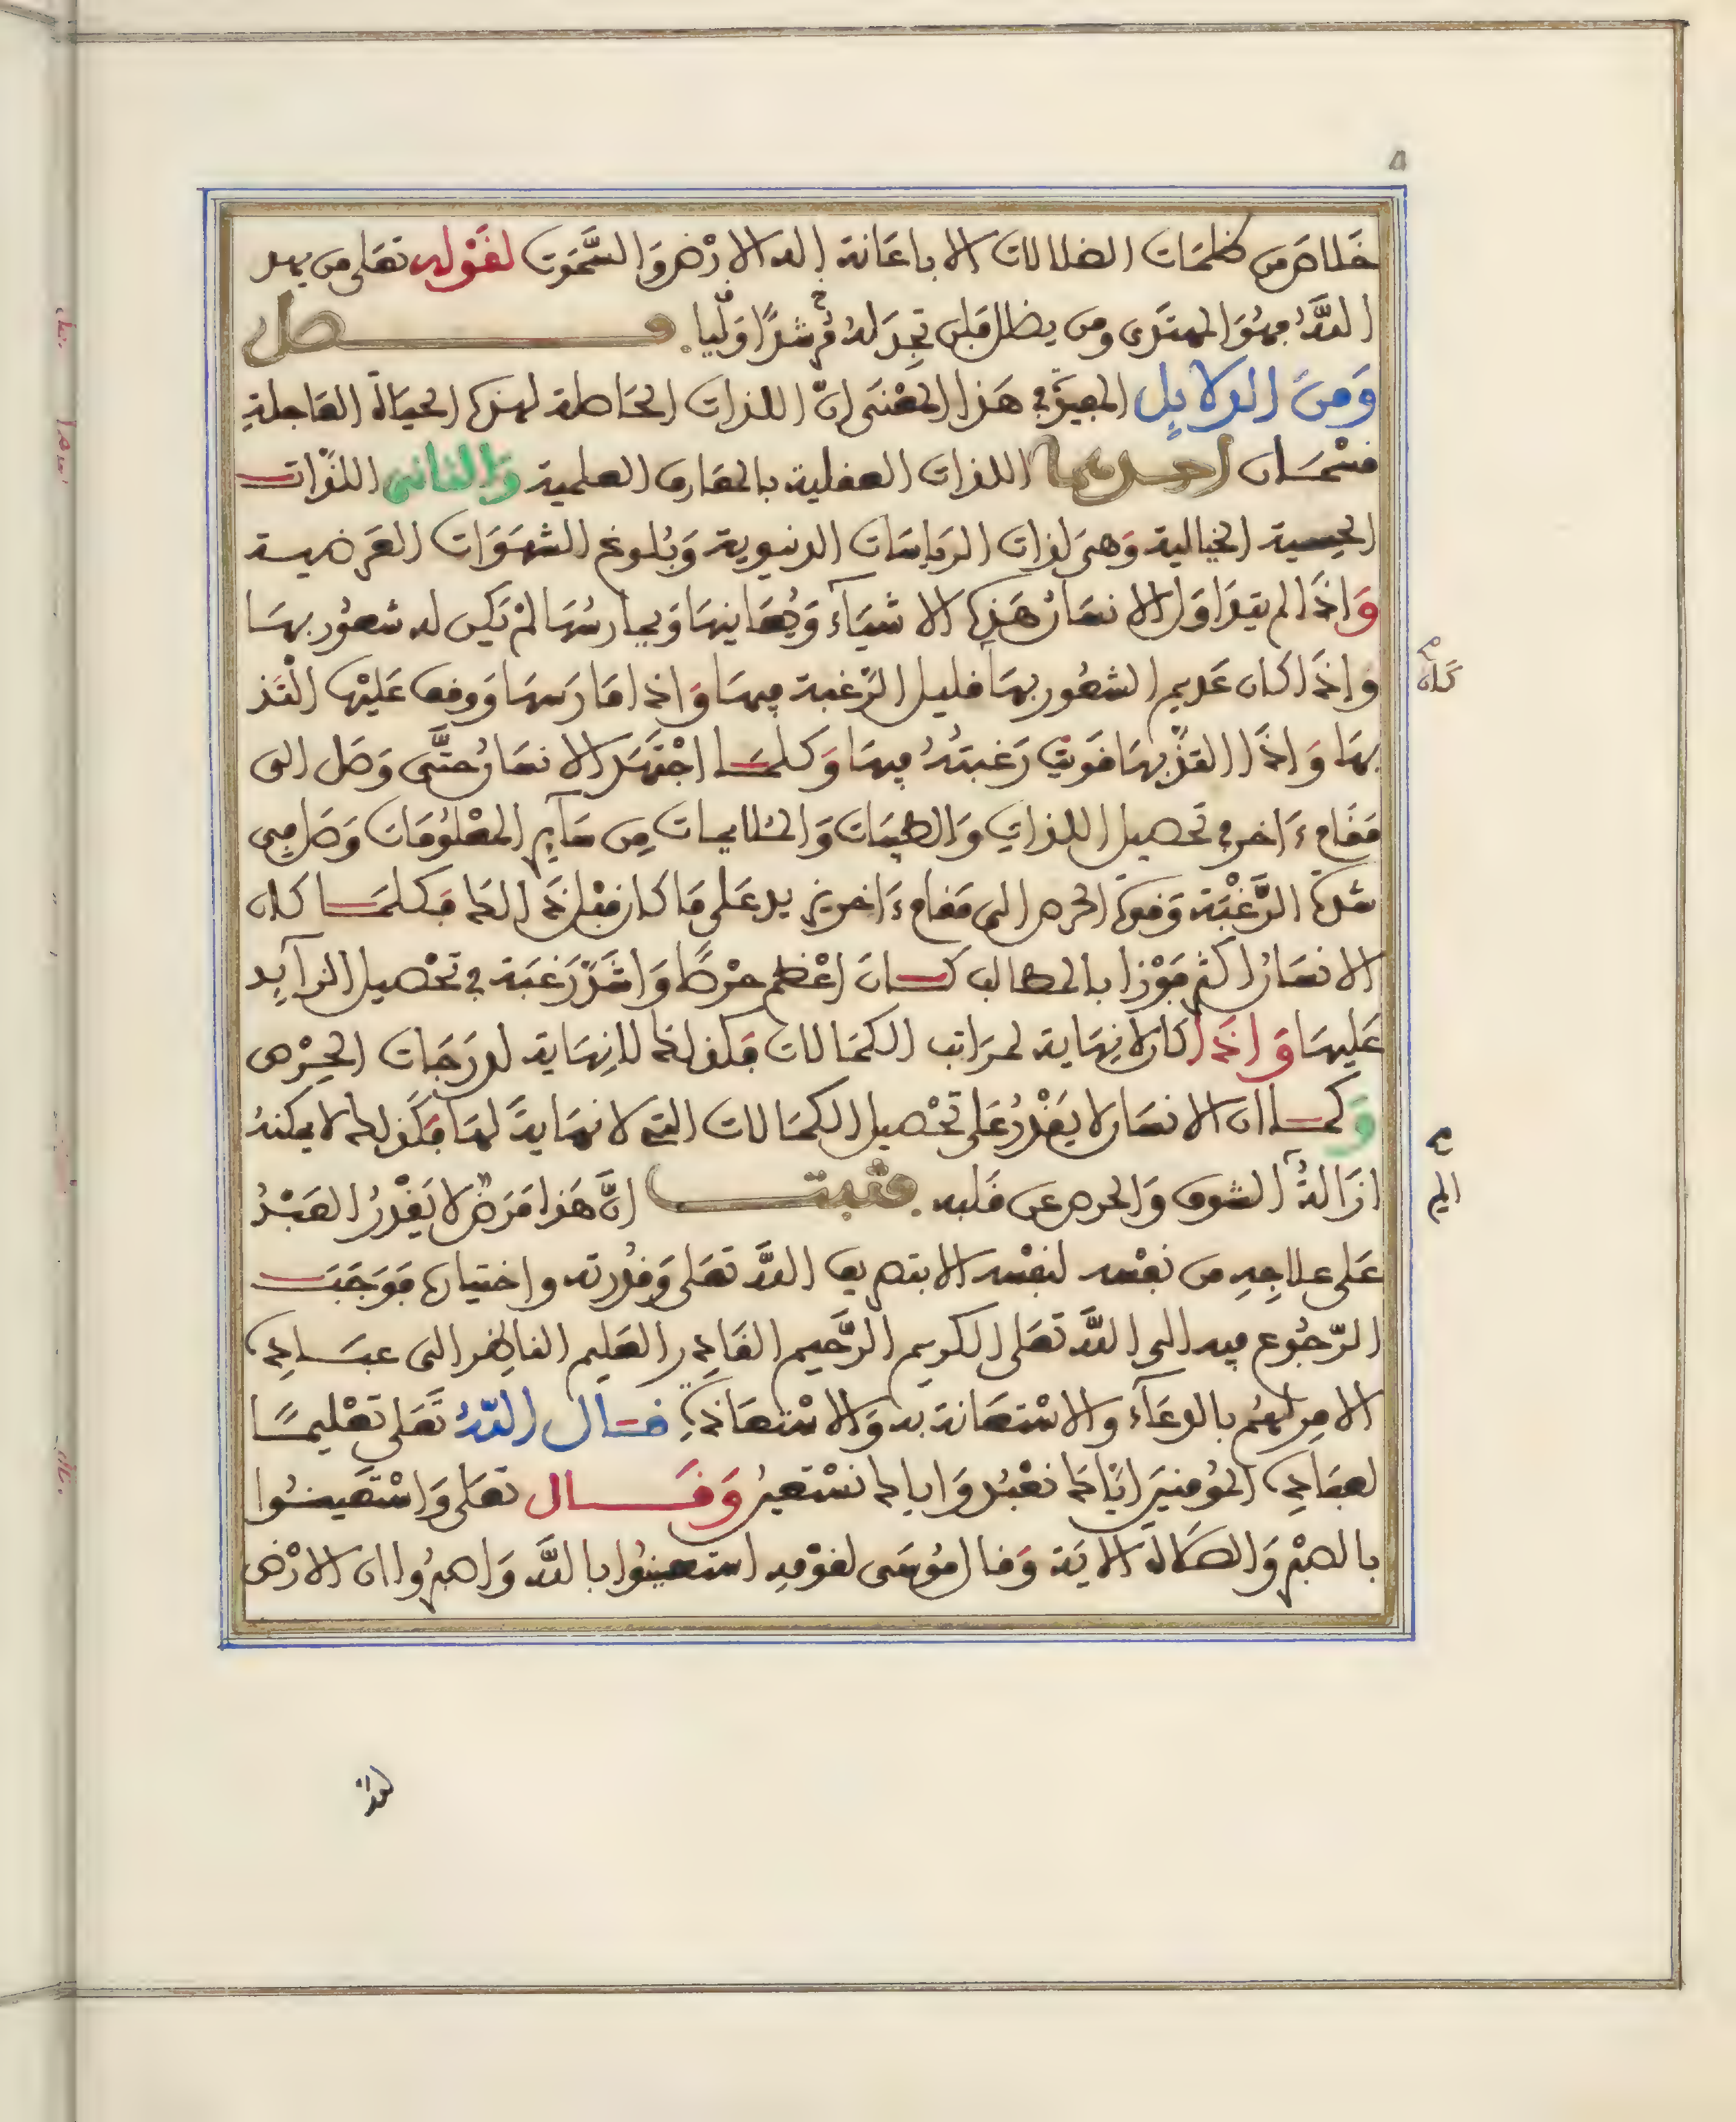 خَلاصَ من ظلمَات الضلالات الا باعَانة اله الارْض وَالسَّمَوٰت لقَوْله تعَلى من يهد
اللَّهُ فهُوَ المهتَدى ومن يضلل فَلن تجِدَ لهُ مُّرشدًا وَليا. فصل
وَمنَ الدلايل المعينة في هَذا المعْنَى انَّ اللذات الحَاصلة لهذه الحيَاة العَاجلةِ
قسْمَان احدىهما اللذات العقلية بالمعَارف العلمية وَالثانى اللذَّات
الحِسية الخيالية وَهىَ لذات الرياسَات الدنيوية وَبُلوغ الشهَوَات العَرَضية
وَاذَا لم يتدَاوَل الانسَانُ هَذه الاشيَآءَ وَيُعَاينهَا وَيمارسُهَا لمْ يَكن له شعُور بهَا
وَاذَا كان عَديم الشعُور بهَا كان قليل الرَّغبة فيهَا وَاذا مَارَسهَا وَوقف عَليْها الْتَذ
بهَا وَاذَا التذَّ بهَا قَويت رَغبتُهُ فيهَا وَكلمَا اجْتهَدَ الانسَانُ حتَّى وَصَل الى
مَقَام ءَاخر في تحصيل اللذات وَالطيبَات وَالملايمات مِن سَآير المعْلوُمَات وَصَل في
شدة الرَّغْبَة وَقوة الحرص الى مَقام ءَاخر يزيد عَلى مَا كان قبْل ذَالكَ فكلمَا كان
الانسَانُ اكثر فَوْزا بالمطالب كان اعْظم حرْصًا وَاشَدّ رَغبَة في تحْصيل الزآيد
عَليهَا وَاذَا كان لا نِهَاية لمرَاتب الكمَالات فكذلكَ لا نِهَاية لدرَجَات الحِرْص
وَكمَا ان الانسَان لا يَقْدرُ عَلى تحْصيل الكمَالات التي لا نهَايةَ لهَا فكَذلكَ لا يمكنهُ
ازَالةُ الم الشوق وَالحرص عن قَلبه. فثبت انَّ هَذا مَرَضٌ لا يَقْدرُ العَبْدُ
عَلى علاجِهِ من نفسه لنفْسه الا بتصريف اللَّه تعَلى وَقُدرته واختياره فوَجَبَت
الرّجُوع فيه الى اللَّه تعَلى الكريم الرَّحيم القَادر العَليم الناظر الى عبَاده
الامِر لهُم بالدعَآء والاسْتعَانة به وَالاسْتعَاذة قال اللَّهُ تَعَلى تعْليمًا
لعبَاده المؤمنينَ ايَّاكَ نعْبُدُ وَاياك نسْتعينُ وَقَال تعَلى وَاسْتَعينُوا
بالصبْر وَالصَلاة الايَة وَقال مُوسَى لقوْمهِ استعينُوا باللَّه وَاصبرُوا ان الارْض
لله